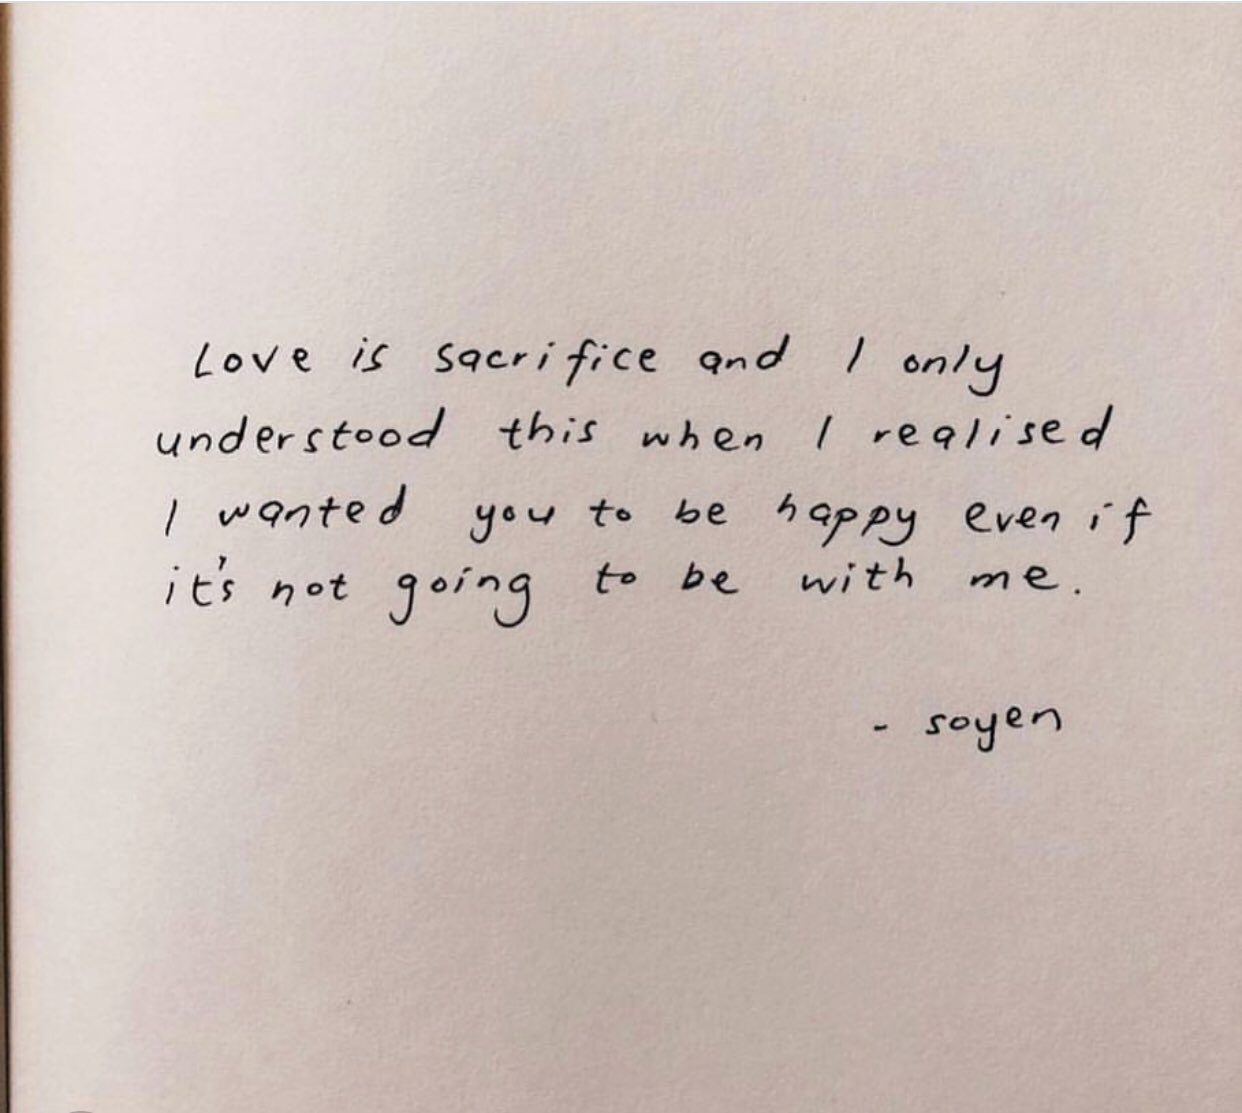 Love is sacrifice and I only
understood this when I realised
I wanted you to be happy even if
it's not going to be with me.
- soyen